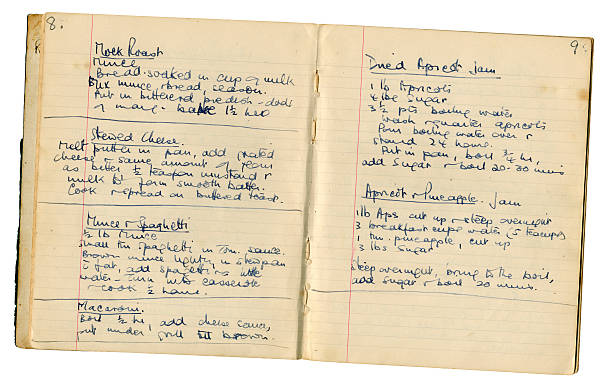 8.
Mock Roast
Mince
Bread soaked in cup of milk
Mix mince, bread, season.
Put in buttered piedish - dods
of marg - bake 1½ hrs
Stewed Cheese.
Melt butter in pan, add grated
cheese & same amount of
as butter ½ teaspoon mustard &
milk to form smooth batter.
Cook & spread on buttered toast.
Mince & Spaghetti
½ lb Mince
Small tin spaghetti in Tom. sauce.
Brown mince lightly in stewpan
fat, add spaghetti & little
water turn into casserole
& cook ½ hour.
Macaroni.
Boil ½ hr, add cheese sauce,
put under grill till brown.
9.
Dried Apricot Jam
1 lb Apricots
4 lbs Sugar
3½ pts boiling water
Wash & quarter apricots
Pour boiling water over &
stand 24 hours.
Put in pan, boil ¾ hr,
add sugar & boil 20-30 mins
Apricot & Pineapple Jam
1 lb Aps cut up & steep overnight
3 breakfast cups water (5 teacups)
1 tin pineapple, cut up
3 lbs Sugar
Steep overnight, bring to the boil,
add sugar & boil 20 mins.